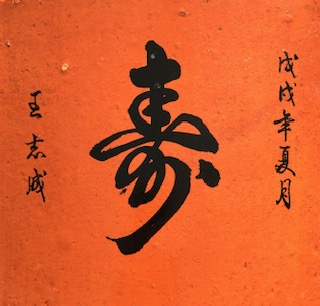 戊戌年夏月
寿
王志成